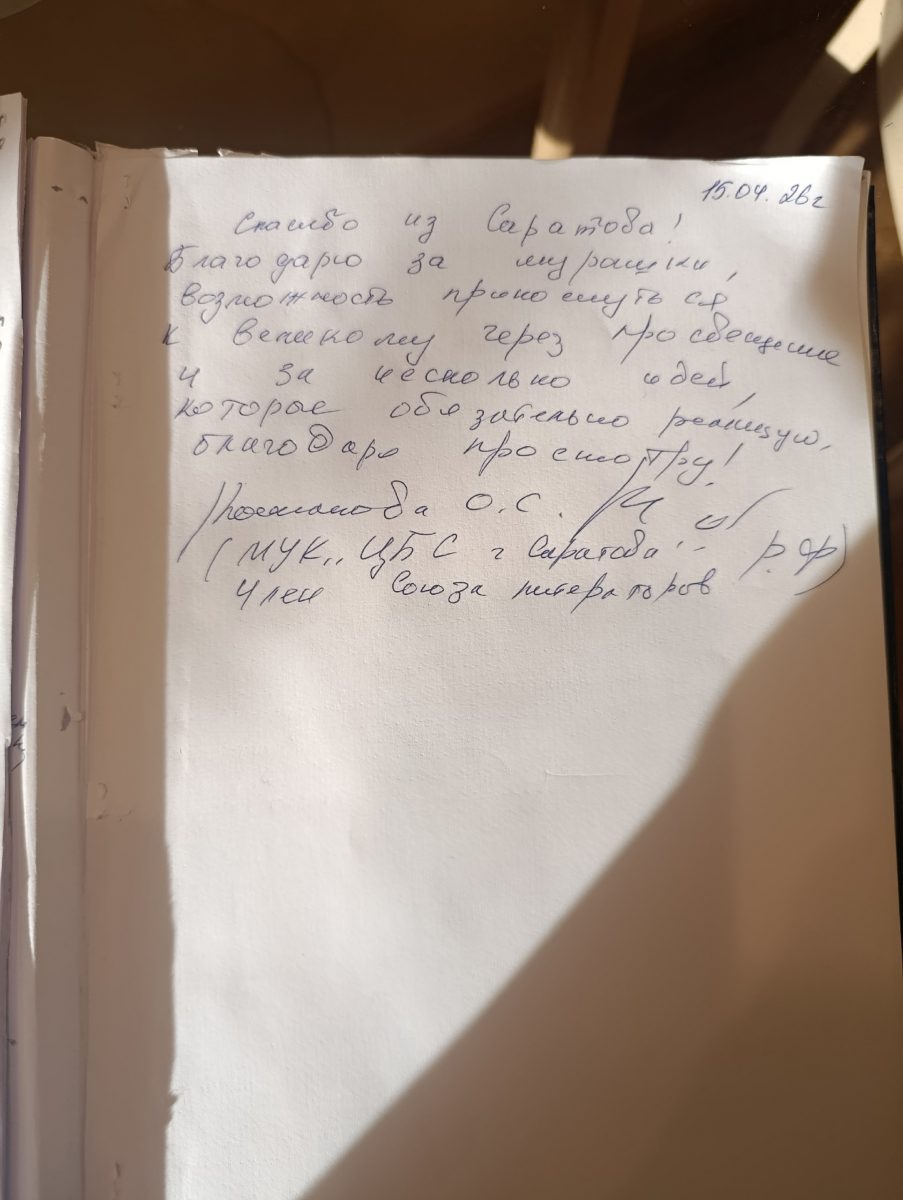 15.04.26г
Спасибо из Саратова!
Благодарю за мурашки,
возможность прикоснуться
к великому через просвещение
и за несколько идей,
которые обязательно реализую,
благодаря просмотру!
О.С.
(МУК „ЦБС г Саратова" РФ)
Член Союза литераторов